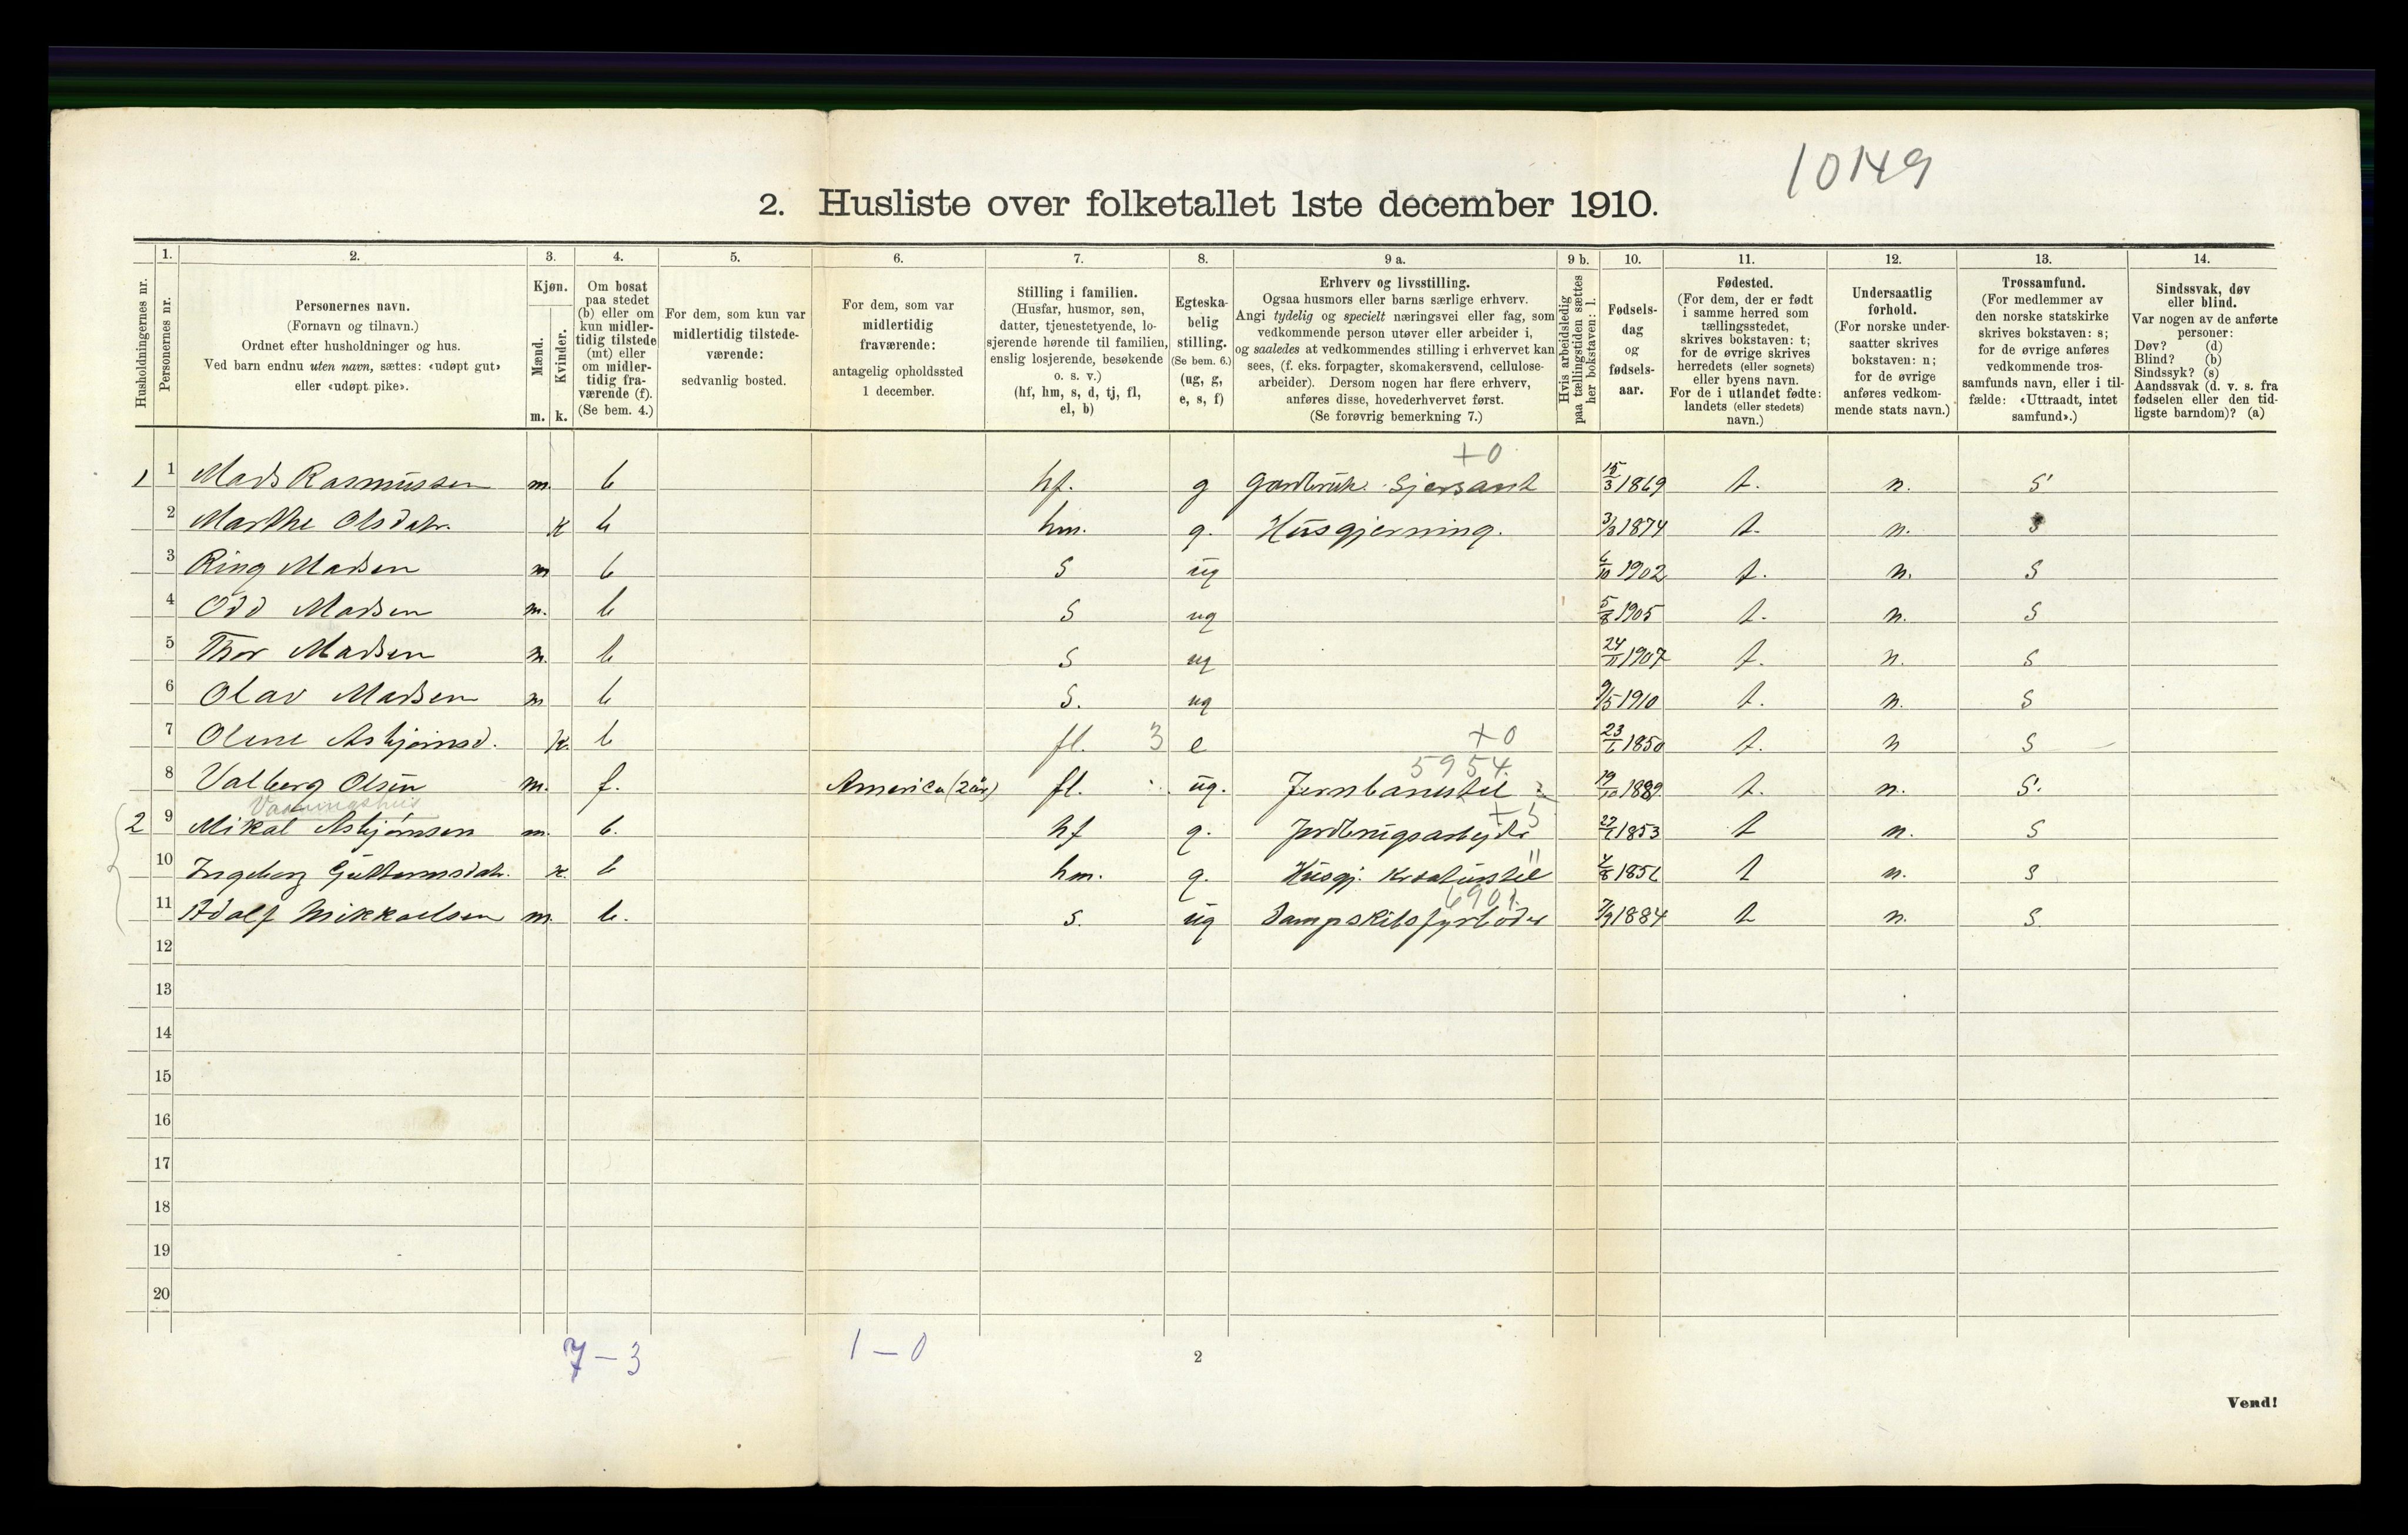 10149
2. Husliste over folketallet 1ste december 1910.
Husholdningernes nr.
1.
Personernes nr.
2.
Personernes navn.
(Fornavn og tilnavn.)
Ordnet efter husholdninger og hus.
Ved barn endnu uten navn, sættes: «udøpt gut»
eller «udøpt pike».
3.
Kjøn.
Mænd.
Kvinder.
m. k.
4.
Om bosat
paa stedet
(b) eller om
kun midler-
tidig tilstede
(mt) eller
om midler-
tidig fra-
værende (f).
(Se bem. 4.)
5.
For dem, som kun var
midlertidig tilstede-
værende:
sedvanlig bosted.
6.
For dem, som var
midlertidig
fraværende:
antagelig opholdssted
1 december.
7.
Stilling i familien.
(Husfar, husmor, søn,
datter, tjenestetyende, lo-
sjerende hørende til familien,
enslig losjerende, besøkende
o. s. v.)
(hf, hm, s, d, tj, fl,
el, b)
8.
Egteska-
belig
stilling.
(Se bem. 6.)
(ug, g,
e, s, f)
9 a.
Erhverv og livsstilling.
Ogsaa husmors eller barns særlige erhverv.
Angi tydelig og specielt næringsvei eller fag, som
vedkommende person utøver eller arbeider i,
og saaledes at vedkommendes stilling i erhvervet kan
sees, (f. eks. forpagter, skomakersvend, cellulose-
arbeider). Dersom nogen har flere erhverv,
anføres disse, hovederhvervet først.
(Se forøvrig bemerkning 7.)
9 b.
Hvis arbeidsledig
paa tællingstiden sættes
her bokstaven: l.
10.
Fødsels-
dag
og
fødsels-
aar.
11.
Fødested.
(For dem, der er født
i samme herred som
tællingsstedet,
skrives bokstaven: t;
for de øvrige skrives
herredets (eller sognets)
eller byens navn.
For de i utlandet fødte:
landets (eller stedets)
navn.)
12.
Undersaatlig
forhold.
(For norske under-
saatter skrives
bokstaven: n;
for de øvrige
anføres vedkom-
mende stats navn.)
13.
Trossamfund.
(For medlemmer av
den norske statskirke
skrives bokstaven: s;
for de øvrige anføres
vedkommende tros-
samfunds navn, eller i til-
fælde: «Uttraadt, intet
samfund».)
14.
Sindssvak, døv
eller blind.
Var nogen av de anførte
personer:
Døv? (d)
Blind? (b)
Sindssyk? (s)
Aandssvak (d. v. s. fra
fødselen eller den tid-
ligste barndom)? (a)
+0
1 1 Mads Rasmussen m. b hf. g Gardbruk. Sjersant 15/3 1869 t. n. s
2 Marthe Olsdatr. k b hm. g. Husgjerning. 3/3 1874 t. n. s
3 Ring Madsen m b s ug 6/10 1902 t. n. s
4 Odd Madsen m. b s ug 5/8 1905 t. n. s
5 Thor Madsen m. b s ug 24/11 1907 t. n. s
6 Olav Madsen m b s. ug 9/5 1910 t. n. s
7 Olene Asbjørnsd. k. b fl. 3 e +0 23/6 1850 t. n s
5954
8 Valberg Olsen m. f. America (2 år) fl. ug. Jernbanestil 19/10 1889 t. n. s.
Vaaningshus +5
2 9 Mikal Asbjørnsen m. b. hf g. Jordbrugsarbejdr 1853 t n. s
10 Ingeborg Guttormsdatr. k. b hm. g. Husgj. Kreaturstel " 4/8 1856 t n. s
6901
11 Adolf Mikkaelsen m. b. s. ug Dampskibsfyrbøder 7/9 1884 t n. s.
12
13
14
15
16
17
18
19
20
7 – 3 1 – 0
2
Vend!